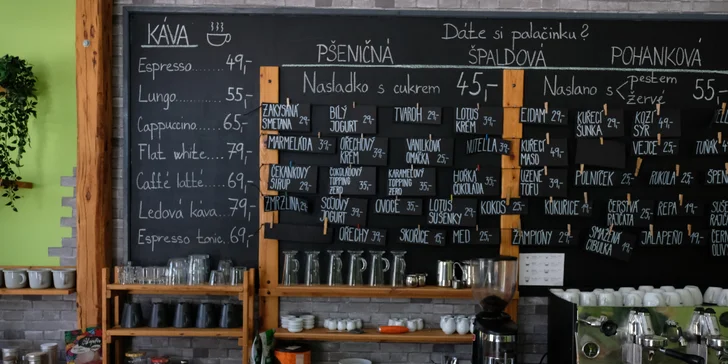 KÁVA
Espresso......49,-
Lungo.........55,-
Cappuccino....65,-
Flat white....79,-
Caffé latté...69,-
Ledová káva...79,-
Espresso tonic.69,-
Dáte si palačinku?
PŠENIČNÁ ŠPALDOVÁ POHANKOVÁ
Nasladko s cukrem 45,-
ZAKYSANÁ SMETANA 29,-
BÍLÝ JOGURT 29,-
TVAROH 29,-
LOTUS KRÉM 39,-
MARMELÁDA 39,-
OŘECHOVÝ KRÉM 39,-
VANILKOVÁ OMÁČKA 25,-
NUTELLA 39,-
ČEKANKOVÝ SIRUP 29,-
ČOKOLÁDOVÝ TOPPING ZERO 35,-
KARAMELOVÝ TOPPING ZERO 35,-
HOŘKÁ ČOKOLÁDA 35,-
ZMRZLINA
SÓJOVÝ JOGURT 39,-
OVOCE 35,-
LOTUS SUŠENKY 29,-
KOKOS
OŘECHY 39,-
SKOŘICE 15,-
MED 25,-
Naslano s pestem 55,-
žervé
EIDAM 29,-
KUŘECÍ ŠUNKA 29,-
KOZÍ SÝR 49,-
KUŘECÍ MASO 49,-
VEJCE 25,-
TUŇÁK
UZENÉ TOFU 39,-
PÓRNÍČEK 25,-
RUKOLA 25,-
KUKUŘICE
ČERSTVÁ RAJČATA 25,-
ŘEPA 19,-
ŽAMPIONY 29,-
SMAŽENÁ CIBULKA 19,-
JALAPEÑO 19,-